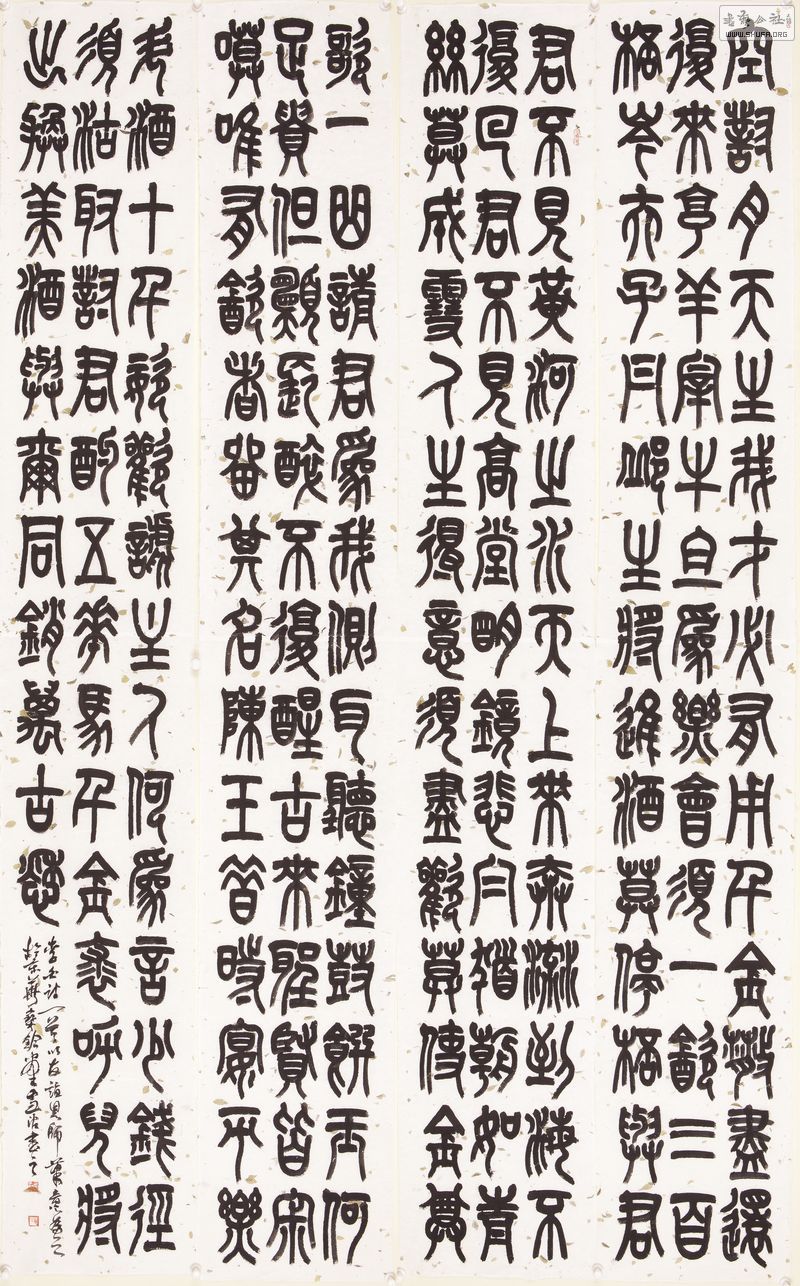 君不見黃河之水天上來奔流到海不
復回君不見高堂明鏡悲白髮朝如青
絲莫成雪人生得意須盡歡莫使金尊
空對月天生我才必有用千金散盡還
復來亨羊宰牛且為樂會須一飲三百
杯岑夫子丹邱生將進酒莫停杯與君
歌一曲請君為我側耳聽鐘鼓饌玉何
足貴但願長醉不復醒古來聖賢皆宋
嗼唯有飲者留其名陳王昔時宴平樂
斗酒十千恣歡謔主人何為言少錢徑
須沽取對君酌五花馬千金裘呼兒將
出換美酒與爾同銷萬古愁
李白詩一首以
书法公社
www.SHUFA.ORG